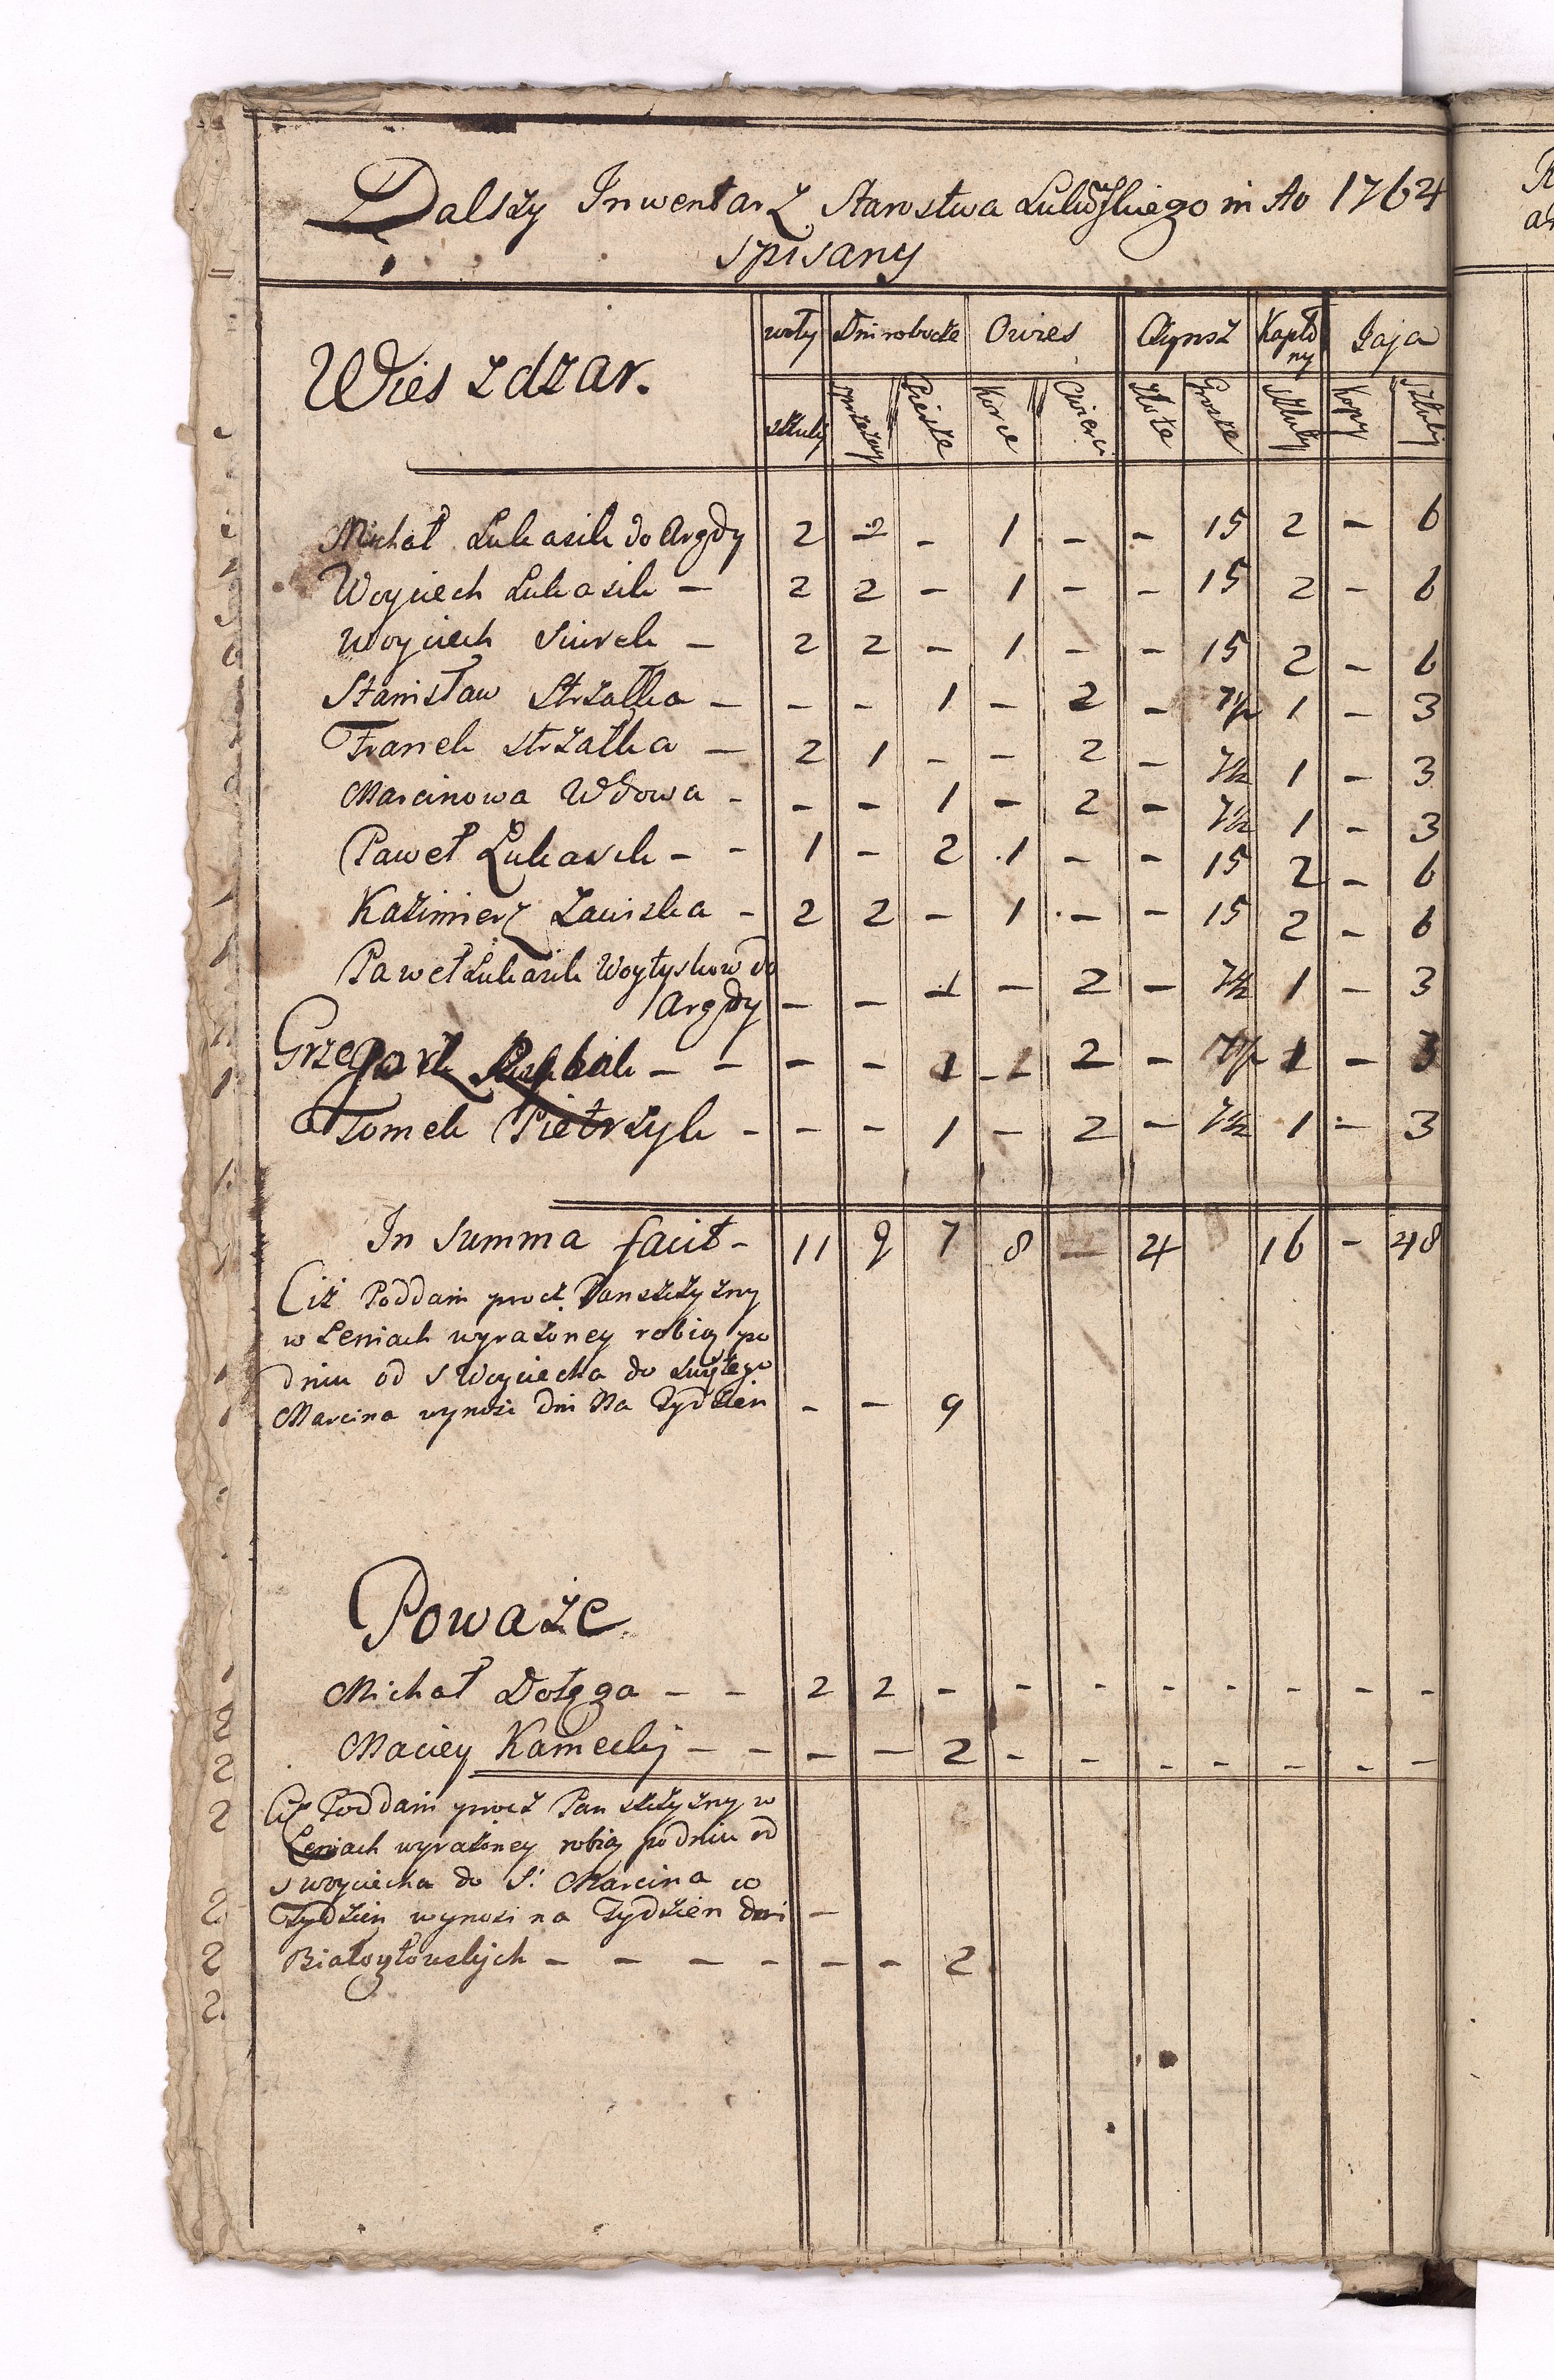 Dalszy Inwentarz Starostwa in Ao 1764
spisany
Wies zdzar.
woły Dni robocze Owies Czynsz Kapłony Jaja
sztuki sprzężay Piesze Korce Cwierci Złote Grosze Sztuki Kopy Sztuki
Michał Lukasik do Argdy 2 2 - 1 - - 15 2 - 6
Woyciech Lukasik - 2 2 - 1 - - 15 2 - 6
Woyciech - 2 2 - 1 - - 15 2 - 6
Stanisław Strzałka - - - 1 - 2 - 7½ 1 - 3
Franek Strzałka - 2 1 - - 2 - 7½ 1 - 3
Marcinowa Wdowa - - - 1 - 2 - 7½ 1 - 3
Paweł Lukasik - - 1 - 2 1 - - 15 2 - 6
Kazimierz Zawiska - 2 2 - 1 - - 15 2 - 6
Paweł Lukasik Woytyskow do
Argdy - - 1 - 2 - 7½ 1 - 3
Grzegorz - - - - 1 - 2 - 7½ 1 - 3
Tomek Pietrzyk - - - 1 - 2 - 7½ 1 - 3
In summa facit - 11 9 7 8 - 4 16 - 48
Ciż Poddani procz Panszczyzny
w Leniach wyrażoney robią po
dniu od S Woyciecha do Swiętego
Marcina wynosi dni Na Tydzień - - 9
Poważe
Michał Dołęga - - 2 2 - - - - - - - -
Maciey Kamecki - - - - 2 - - - - - - -
Ciż Poddani procz Panszczyzny w
Leniach wyrażoney robią po dniu od
S Woyciecha do S. Marcina co
Tydzień wynosi na Tydzień dni -
- - - - - - 2